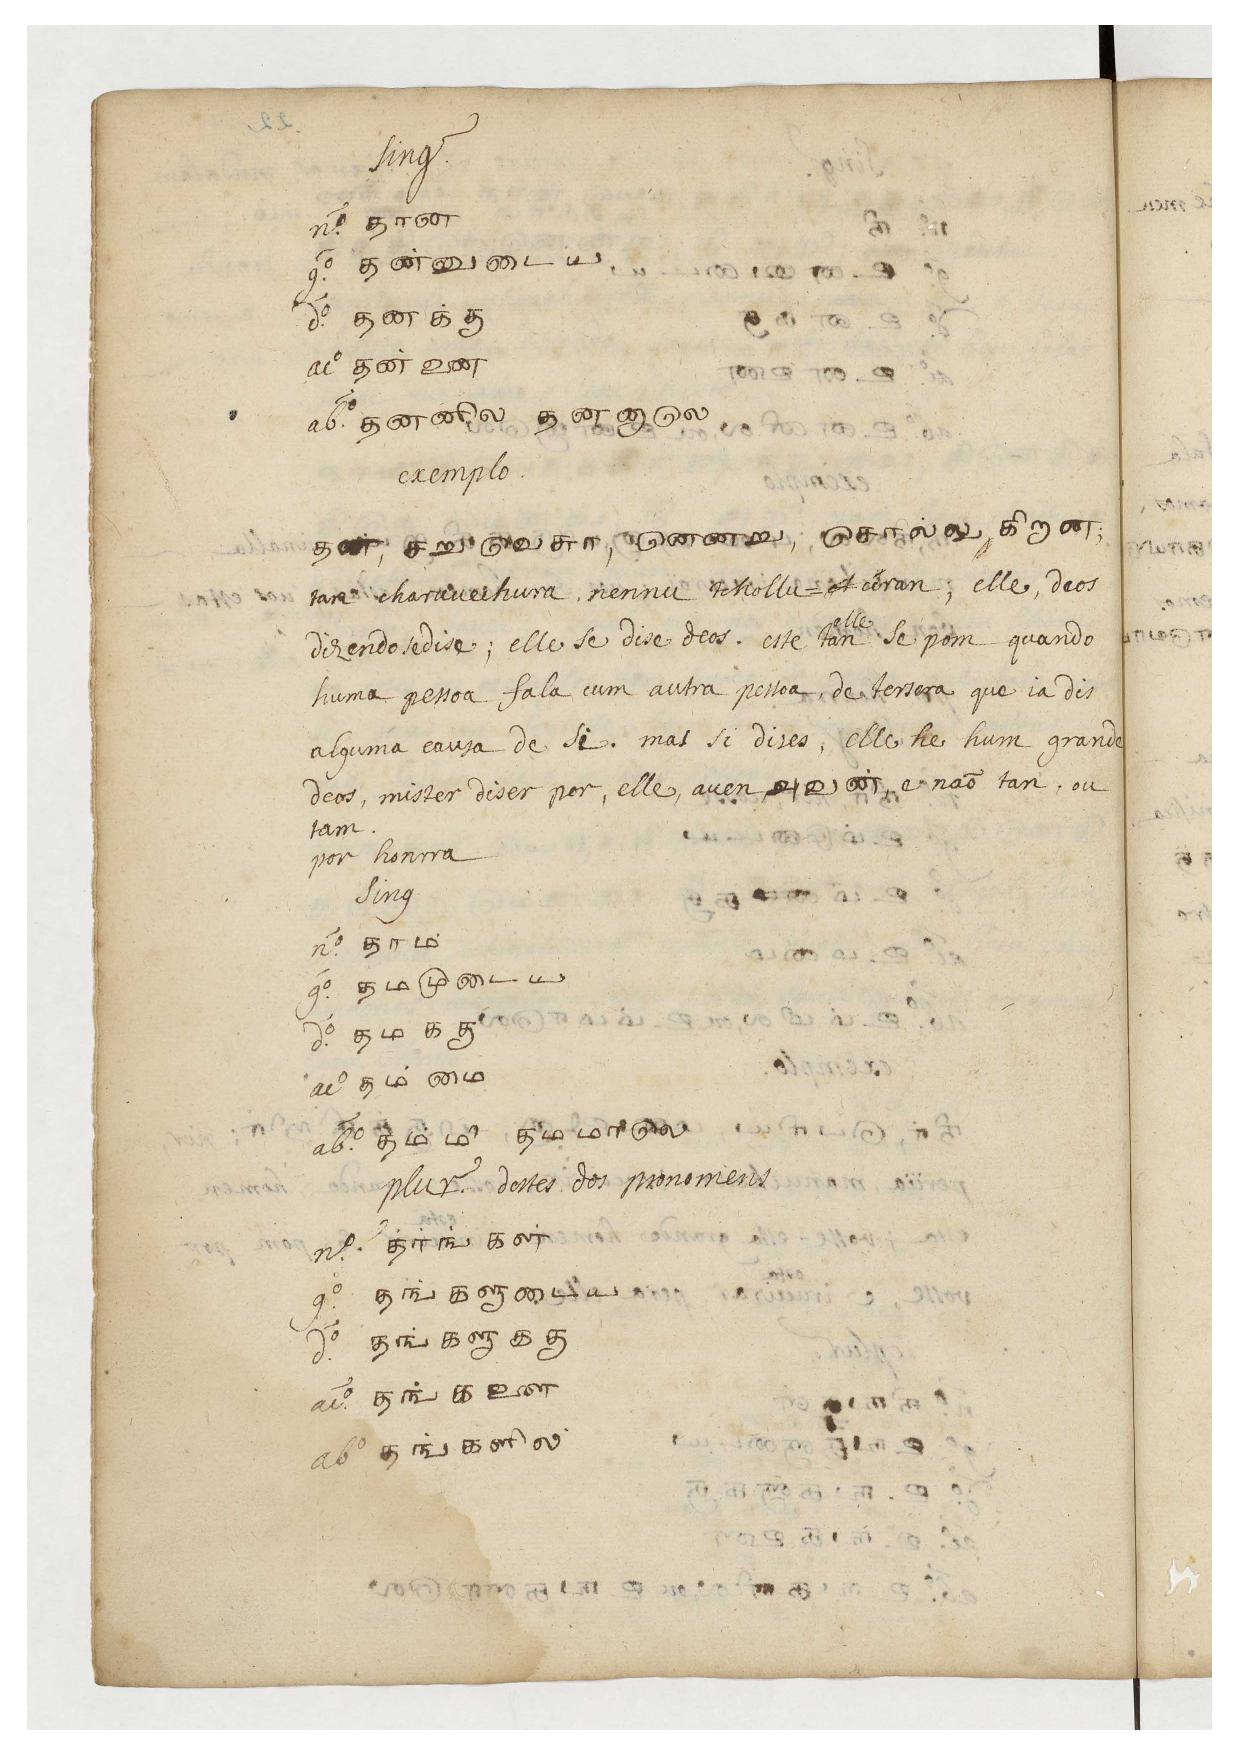 Sing.r
n.o தான
g.o தன்னுடைய
d.o தனக்கு
ac.o தன்னை
ab.o தனனில தனனாலெ
exemplo.
தன, சறுவெசுரா, னெனறு, சொல்லுகிறான;
tan charuuechura, nennu chollu= ciran; elle, deos
dizendosedise; elle se dise deos. este tan elle se pom quando
huma pessoa fala cum autra pessoa, de tersera que ia dis
alguma causa de si. mas si dizes, elle he hum grande
deos, mister diser por, elle, auen, அவன், e naõ tan, ou
tam.
por honrra
Sing
n.o தாம்
g.o தமமுடைய
d.o தமககு
ac.o தம்மை
ab.o தம்மி தமமாலெ
plur.r destes dos pronomens
n.o தாங்கள்
g.o தங்களுடைய
d.o தங்களுககு
ac.o தங்களை
ab.o தங்களில்